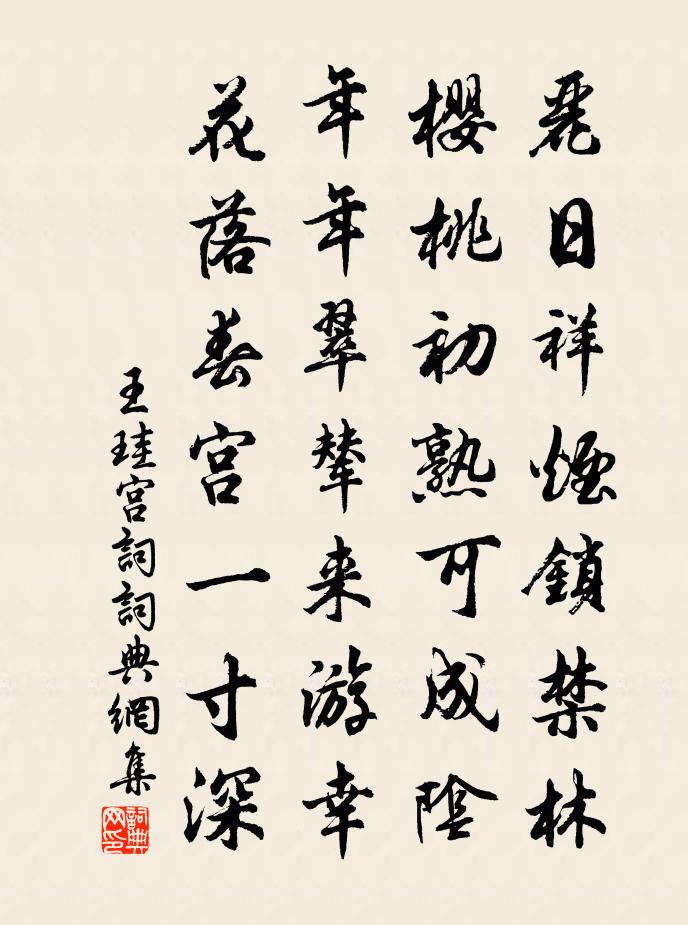 麗日祥煙鎖禁林
櫻桃初熟可成陰
年年翠輦来游幸
花落春宮一寸深
王珪宮詞詞典網集
詞典网印